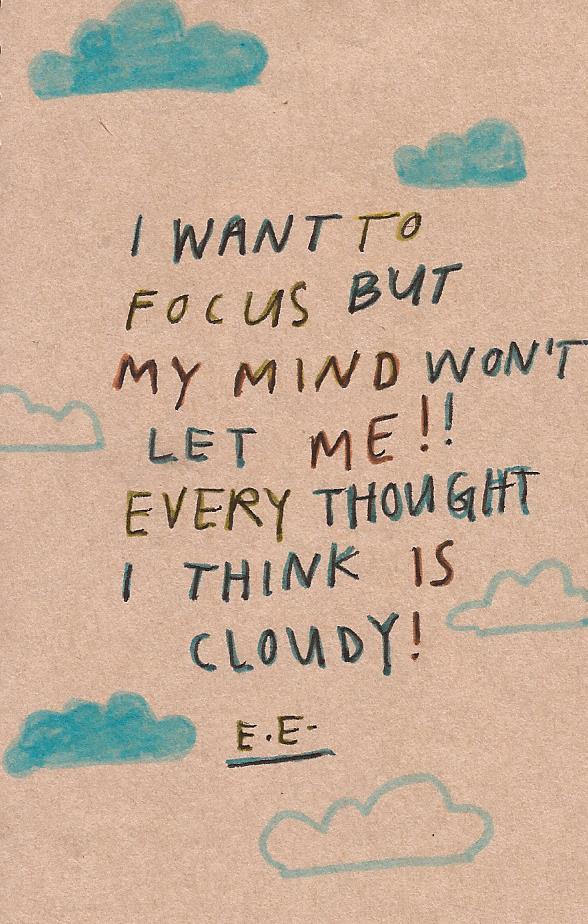 I WANT TO
FOCUS BUT
MY MIND WON'T
LET ME!!
EVERY THOUGHT
I THINK IS
CLOUDY!
E.E-